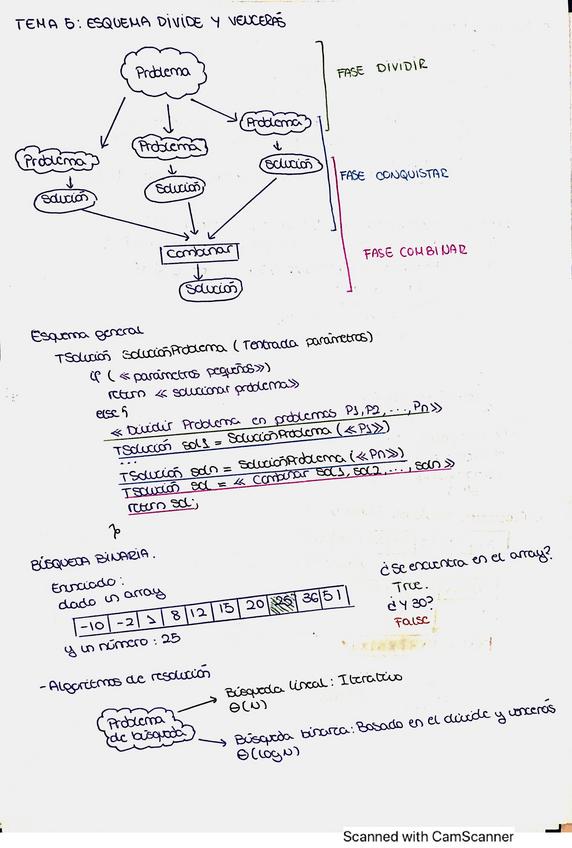 TEMA 5: ESQUEMA DIVIDE Y VENCERÁS
Problema
FASE DIVIDIR
Problema
Problema
Problema
Solución
Solución
Solución
FASE CONQUISTAR
Combinar
FASE COMBINAR
Solución
Esquema general
TSolución SoluciónProblema (Tentrada parámetros)
if (<<parámetros pequeños>>)
return <<solucionar problema>>
else{
<<Dividir Problema en problemas P1, P2, ..., Pn>>
TSolución sol1 = SoluciónProblema (<<P1>>)
...
TSolución soln = SoluciónProblema (<<Pn>>)
TSolución sol = <<Combinar sol1, sol2, ..., soln>>
return sol;
}
BÚSQUEDA BINARIA.
Enunciado:
dado un array
-10 -2 1 8 12 15 20 25 36 51
y un número: 25
¿Se encuentra en el array?
True.
¿Y 30?
False
- Algoritmos de resolución
Problema
de búsqueda
Búsqueda lineal: Iterativo
Θ(N)
Búsqueda binaria: Basado en el divide y vencerás
Θ(log N)
Scanned with CamScanner